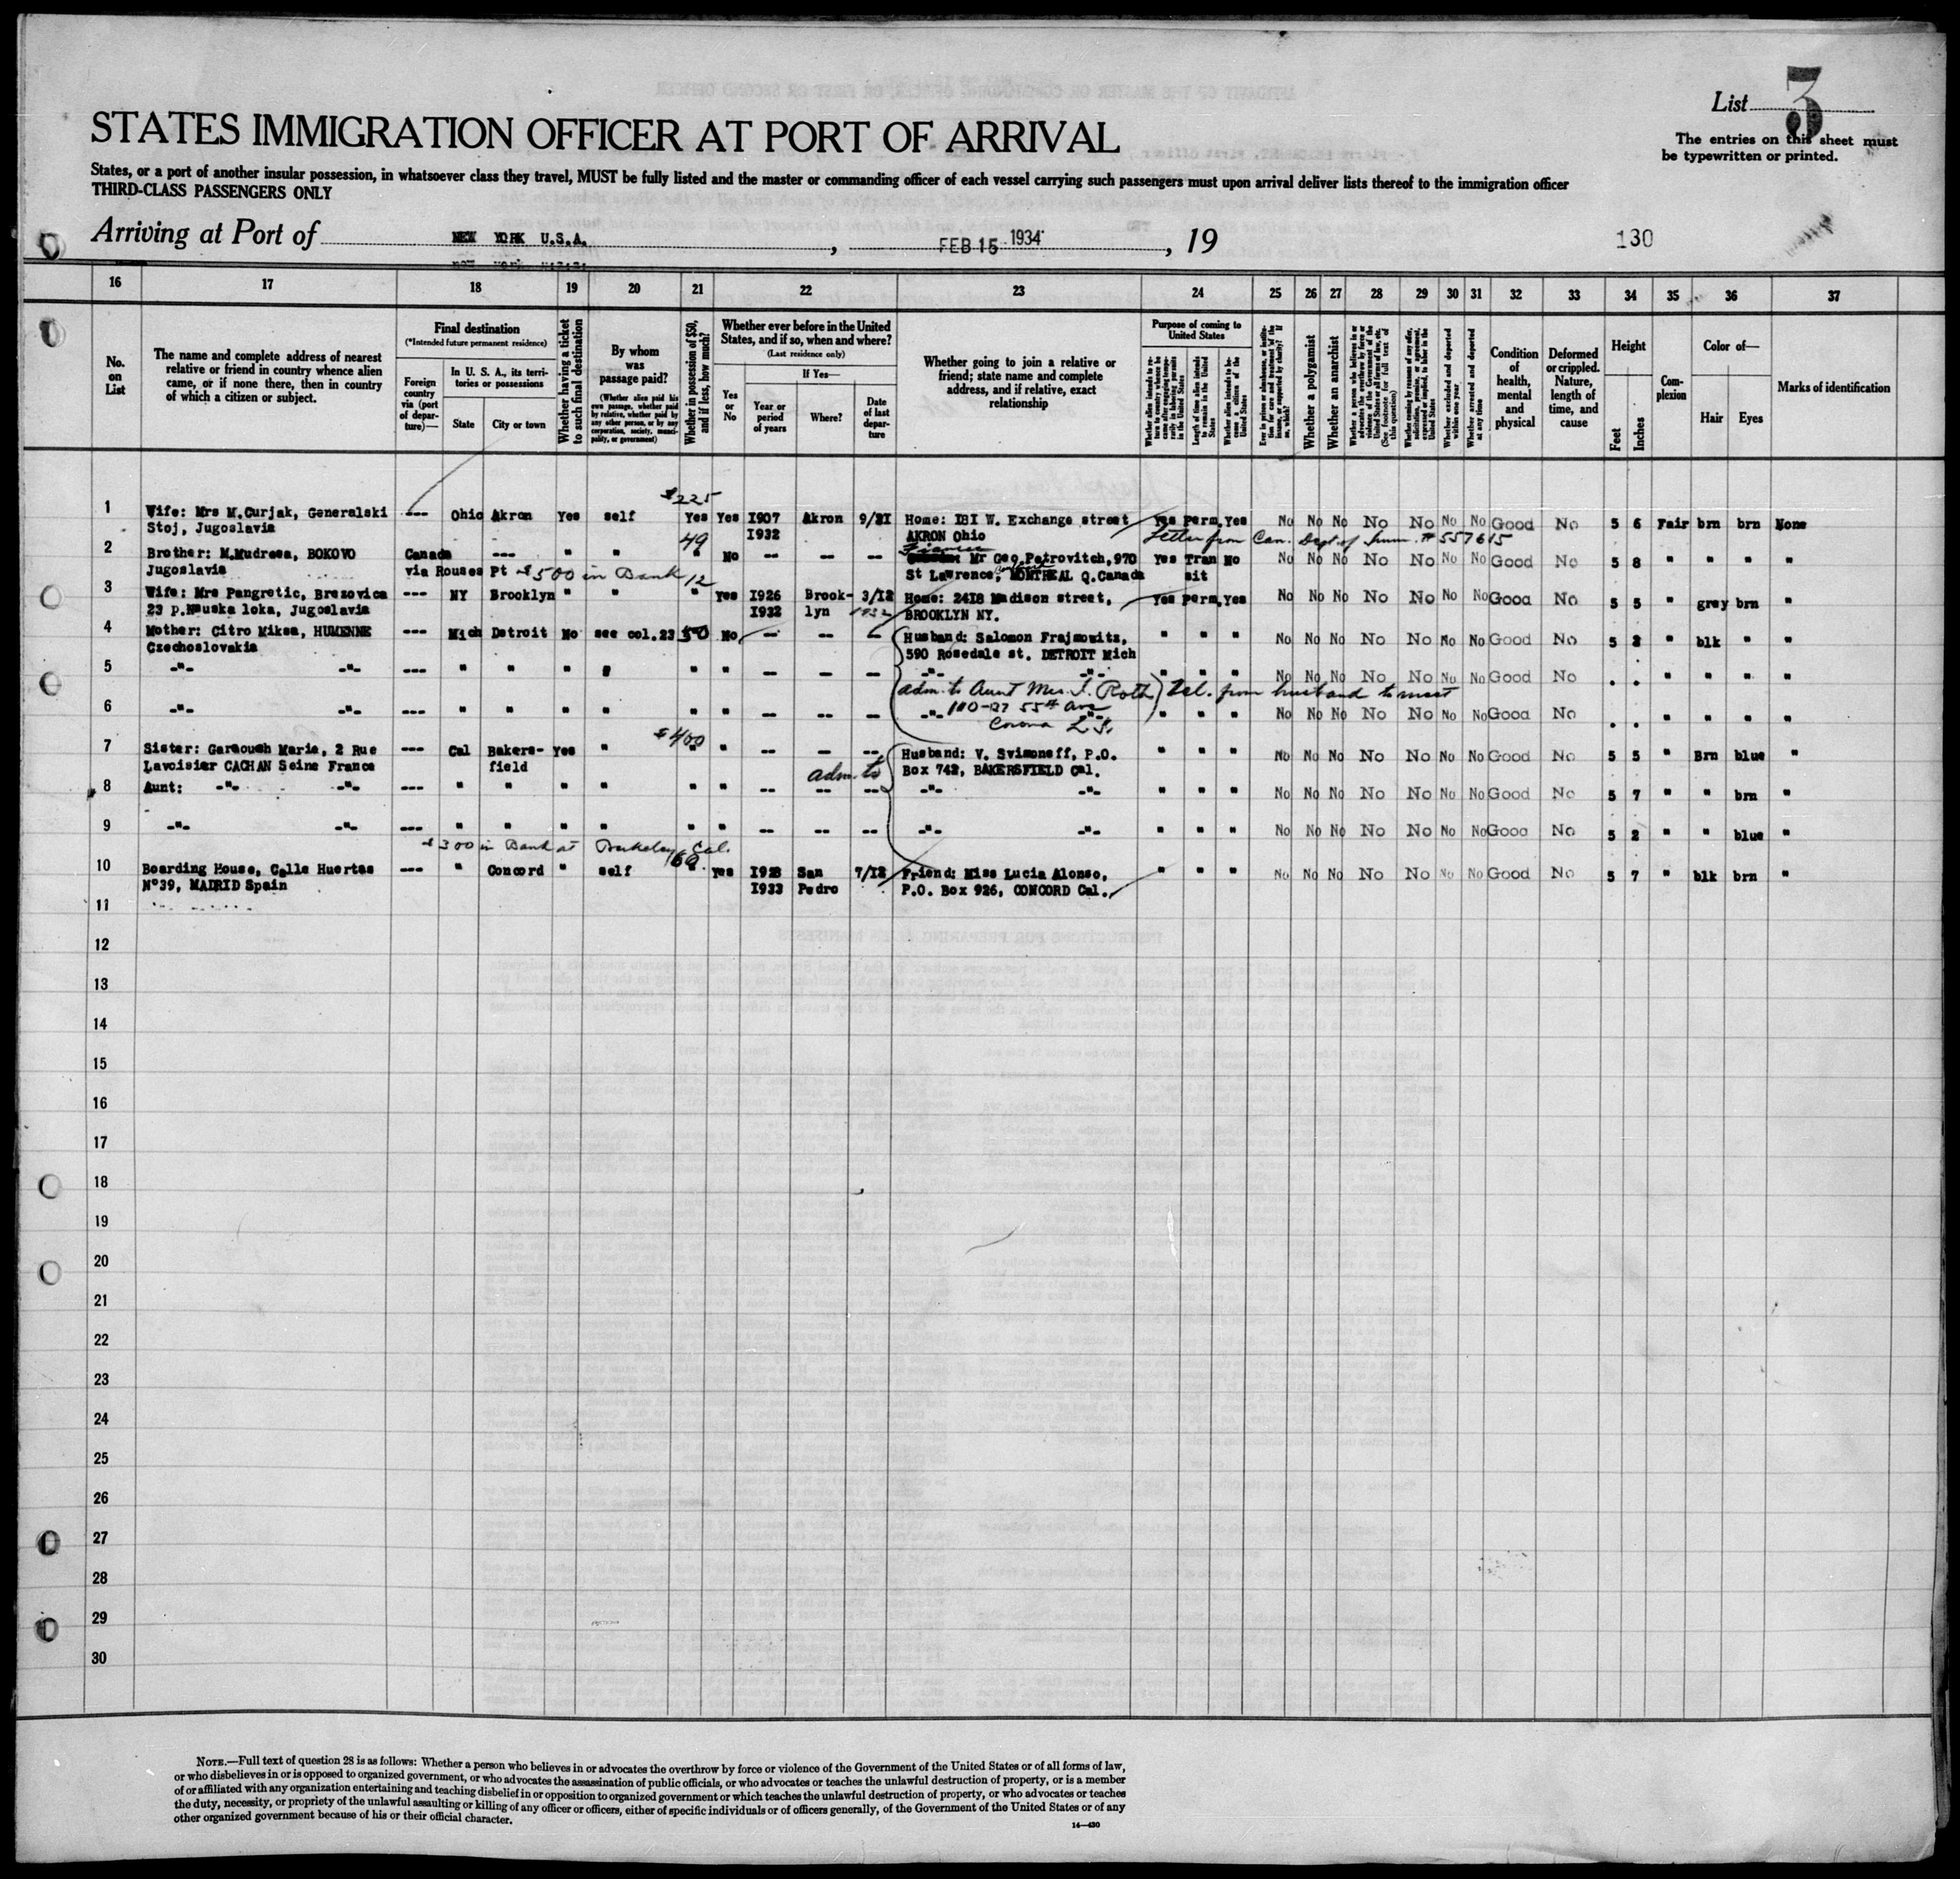 List 3
STATES IMMIGRATION OFFICER AT PORT OF ARRIVAL
The entries on this sheet must
be typewritten or printed.
States, or a port of another insular possession, in whatsoever class they travel, MUST be fully listed and the master or commanding officer of each vessel carrying such passengers must upon arrival deliver lists thereof to the immigration officer
THIRD-CLASS PASSENGERS ONLY
Arriving at Port of NEW YORK U.S.A. , FEB 15 1934 , 19
130
16 17 18 19 20 21 22 23 24 25 26 27 28 29 30 31 32 33 34 35 36 37
No. on List
The name and complete address of nearest relative or friend in country whence alien came, or if none there, then in country of which a citizen or subject.
Final destination
(*Intended future permanent residence)
Foreign country via (port of departure)—
In U. S. A., its territories or possessions
State
City or town
Whether having a ticket to such final destination
By whom was passage paid?
(Whether alien paid his own passage, whether paid by relative, whether paid by any other person, or by any corporation, society, municipality, or government)
Whether in possession of $50, and if less, how much?
Whether ever before in the United States, and if so, when and where?
(Last residence only)
Yes or No
If Yes—
Year or period of years
Where?
Date of last departure
Whether going to join a relative or friend; state name and complete address, and if relative, exact relationship
Purpose of coming to United States
Length of time alien intends to remain in the United States
Whether alien intends to become a citizen of the United States
Whether a polygamist
Whether an anarchist
Whether excluded and deported within one year
Whether arrested and deported at any time
Condition of health, mental and physical
Deformed or crippled. Nature, length of time, and cause
Height
Feet
Inches
Complexion
Color of—
Hair
Eyes
Marks of identification
$225
1 Wife: Mrs M.Curjak, Generalski --- Ohio Akron Yes self Yes Yes I907 Akron 9/2I Home: I8I W. Exchange street Yes Perm. Yes No No No No No No No Good No 5 6 Fair brn brn None
Stoj, Jugoslavia I932 AKRON Ohio Letter from Can. Dept of Imm. # 557615
49
2 Brother: M.Mudresa, BOKOVO Canada --- " " " No -- -- -- Fiancee Mr Geo.Petrovitch,970 Yes Tran No No No No No No No No Good No 5 8 " " " "
Jugoslavia via Rouses Pt $500 in Bank 12 St Lawrence, MONTREAL Q.Canada sit
3 Wife: Mrs Pangretic, Brezovica --- NY Brooklyn " " " Yes I926 Brook- 3/I2 Home: 24I8 Madison street, Yes perm. Yes No No No No No No No Good No 5 5 " grey brn "
23 p. loka, Jugoslavia I932 lyn 1932 BROOKLYN NY.
4 Mother: Citro Miksa, HUMENNE --- Mich Detroit No see col.23 50 No -- -- -- Husband: Salomon Frajmowits, " " " No No No No No No No Good No 5 2 " blk " "
Czechoslovakia 590 Rosedale st. DETROIT Mich
5 -"- -"- --- " " " " " " -- -- -- -"- -"- " " " No No No No No No No Good No . . " " " "
adm. to Aunt Mrs. I. Roth) Tel. from husband to meet
6 -"- -"- --- " " " " " " -- -- -- -"- 110-27 55th Ave -"- " " " No No No No No No No Good No . . " " " "
Corona L.I.
$400
7 Sister: Garaough Marie, 2 Rue --- Cal Bakers- Yes " " " -- -- -- Husband: V. Svimoneff, P.O. " " " No No No No No No No Good No 5 5 " Brn blue "
Lavoisier CACHAN Seine France field adm. to Box 742, BAKERSFIELD Cal.
8 Aunt: -"- -"- --- " " " " " " -- -- -- -"- -"- " " " No No No No No No No Good No 5 7 " " brn "
9 -"- -"- --- " " " " " " -- -- -- -"- -"- " " " No No No No No No No Good No 5 2 " " blue "
$300 in Bank at Berkeley, Cal.
10 Boarding House, Calle Huertas --- " Concord " self yes I928 San 7/I2 Friend: Miss Lucia Alonso, " " " No No No No No No No Good No 5 7 " blk brn "
N°39, MADRID Spain I933 Pedro P.O. Box 926, CONCORD Cal.
11
12
13
14
15
16
17
18
19
20
21
22
23
24
25
26
27
28
29
30
NOTE.—Full text of question 28 is as follows: Whether a person who believes in or advocates the overthrow by force or violence of the Government of the United States or of all forms of law,
or who disbelieves in or is opposed to organized government, or who advocates the assassination of public officials, or who advocates or teaches the unlawful destruction of property, or is a member
of or affiliated with any organization entertaining and teaching disbelief in or opposition to organized government or which teaches the unlawful destruction of property, or who advocates or teaches
the duty, necessity, or propriety of the unlawful assaulting or killing of any officer or officers, either of specific individuals or of officers generally, of the Government of the United States or of any
other organized government because of his or their official character.
14—430